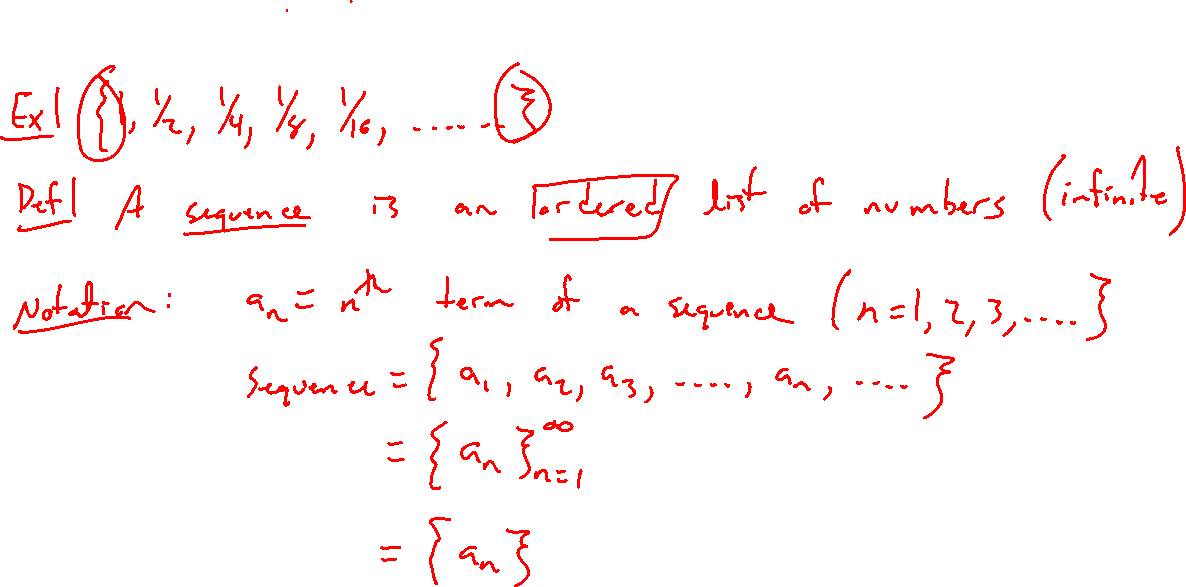 Ex| {1, 1/2, 1/4, 1/8, 1/16, ...... }
Def| A sequence is an ordered list of numbers (infinite)
Notation: aₙ = nᵗʰ term of a sequence (n=1, 2, 3, .... }
Sequence = { a₁, a₂, a₃, ...., aₙ, .... }
= { aₙ }ₙ₌₁^∞
= { aₙ }